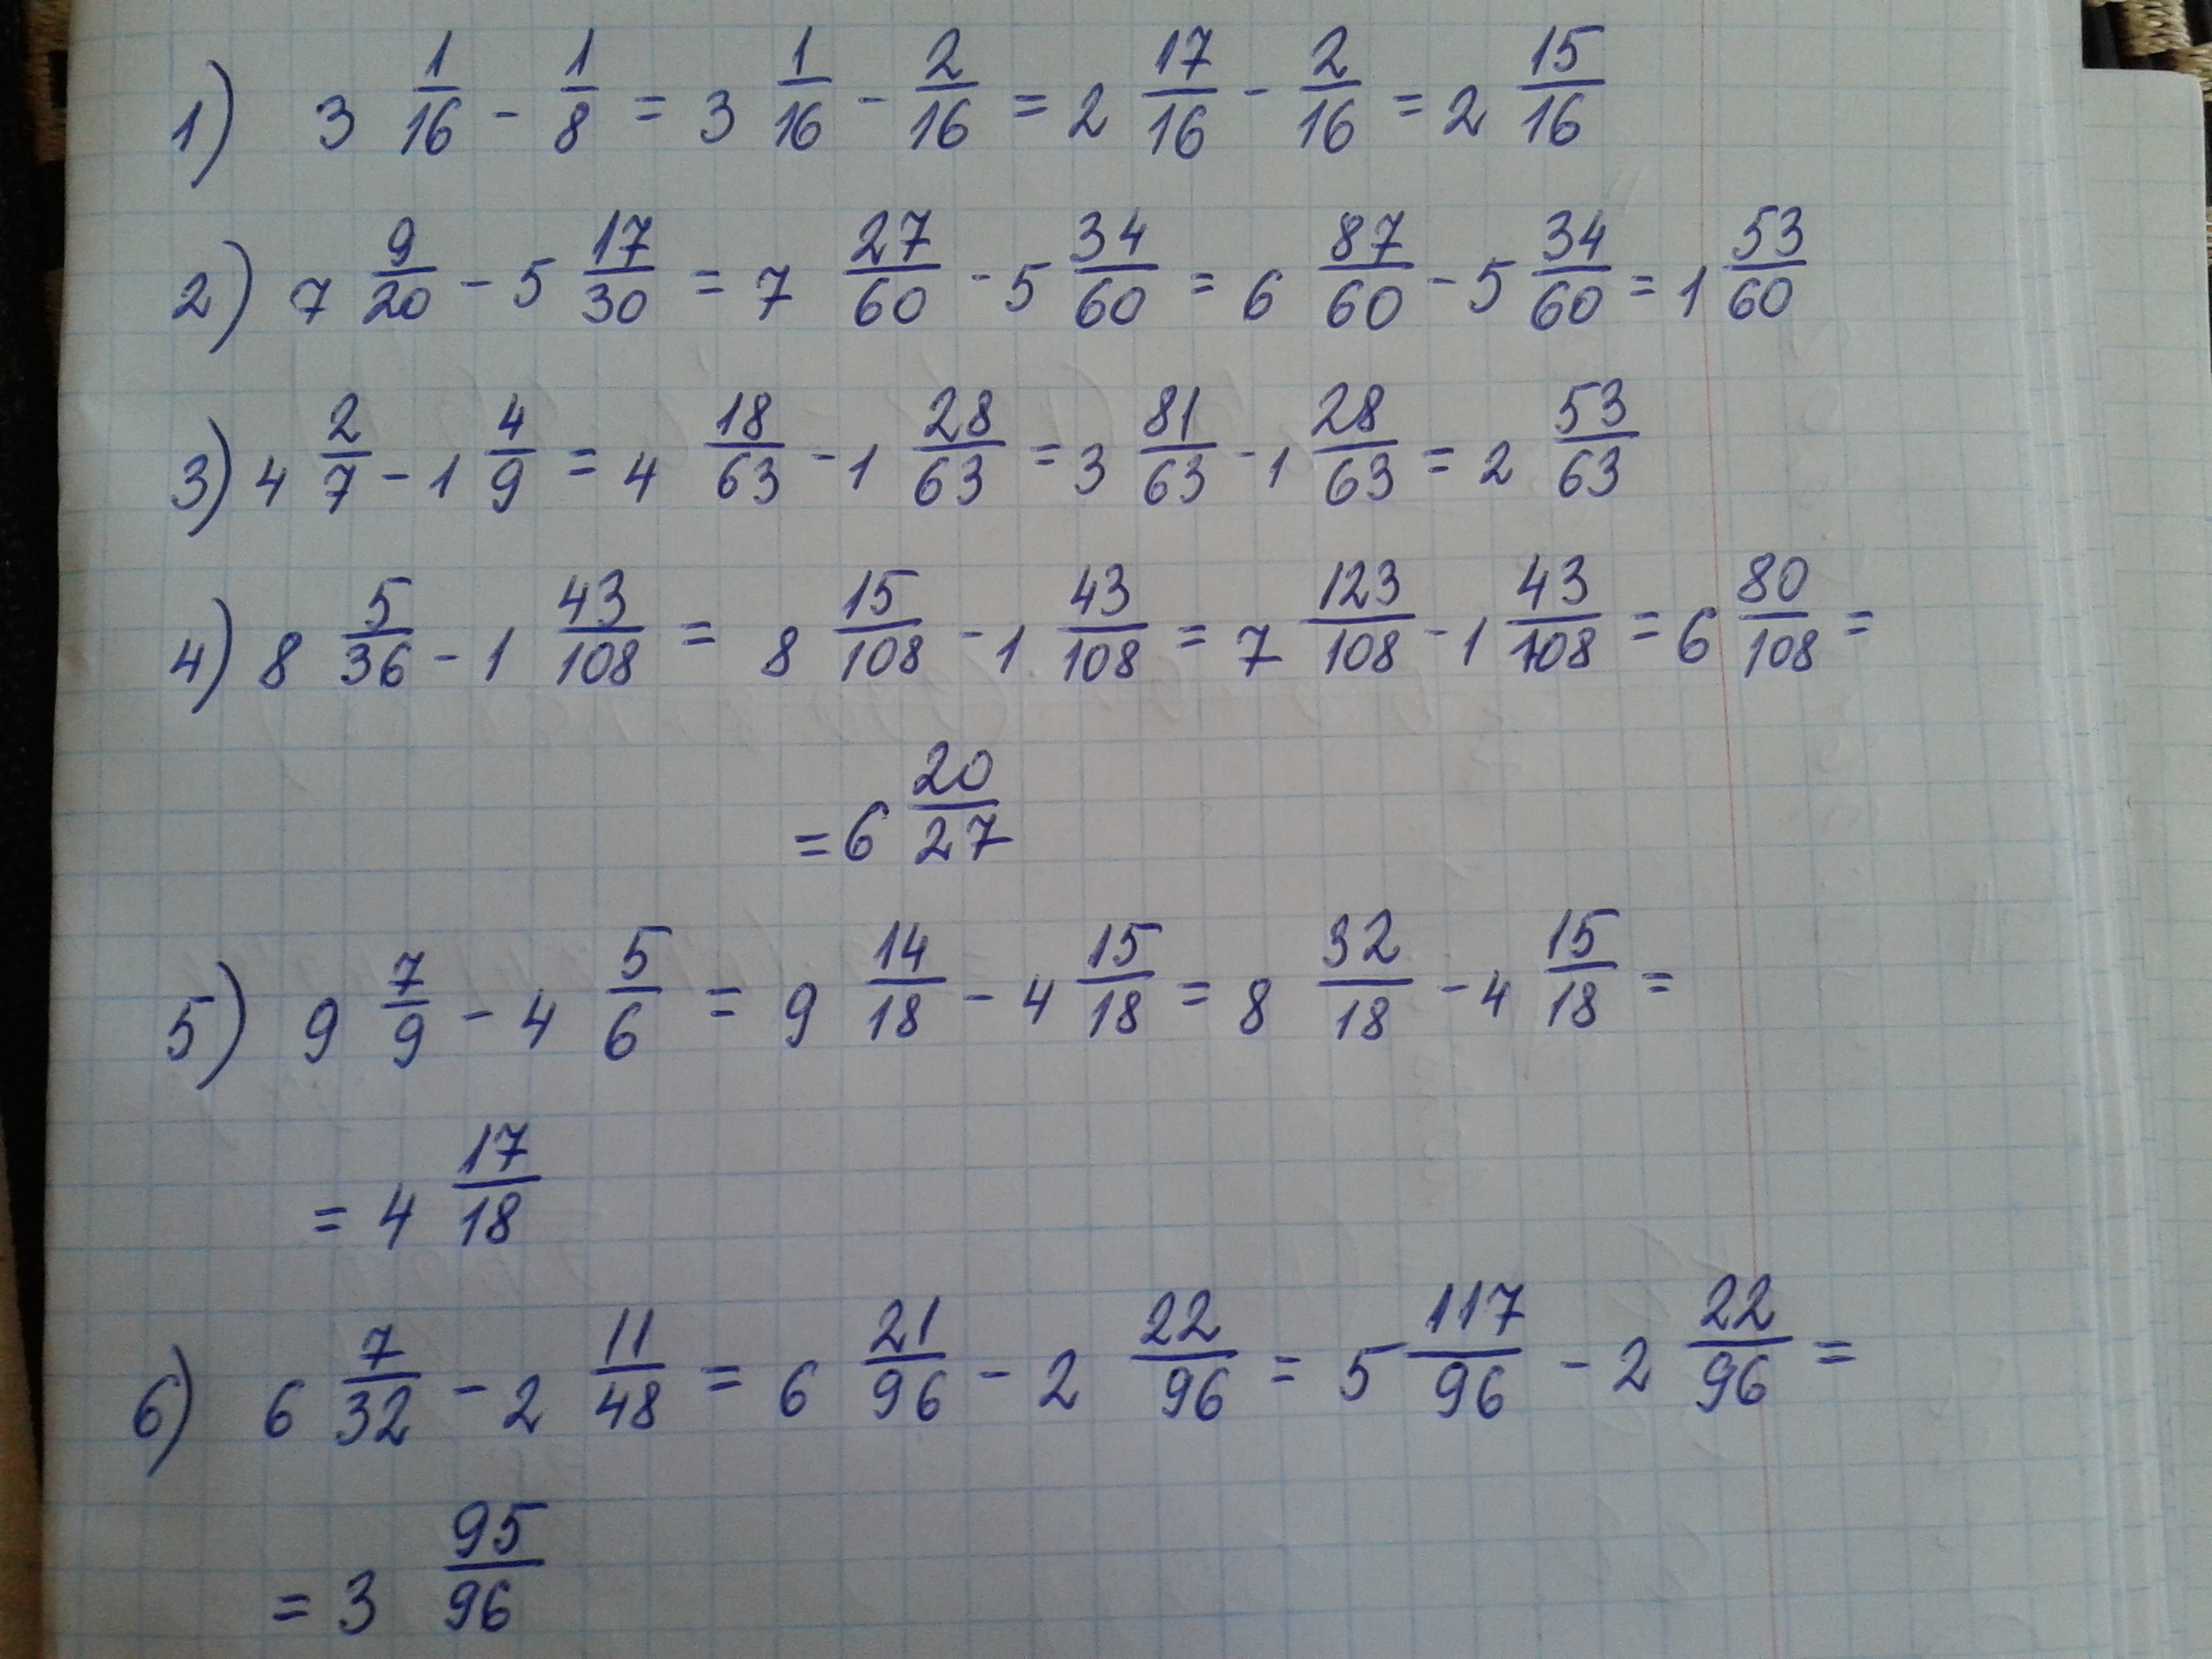 1) 3 1/16 - 1/8 = 3 1/16 - 2/16 = 2 17/16 - 2/16 = 2 15/16
2) 7 9/20 - 5 17/30 = 7 27/60 - 5 34/60 = 6 87/60 - 5 34/60 = 1 53/60
3) 4 2/7 - 1 4/9 = 4 18/63 - 1 28/63 = 3 81/63 - 1 28/63 = 2 53/63
4) 8 5/36 - 1 43/108 = 8 15/108 - 1 43/108 = 7 123/108 - 1 43/108 = 6 80/108 =
= 6 20/27
5) 9 7/9 - 4 5/6 = 9 14/18 - 4 15/18 = 8 32/18 - 4 15/18 =
= 4 17/18
6) 6 7/32 - 2 11/48 = 6 21/96 - 2 22/96 = 5 117/96 - 2 22/96 =
= 3 95/96